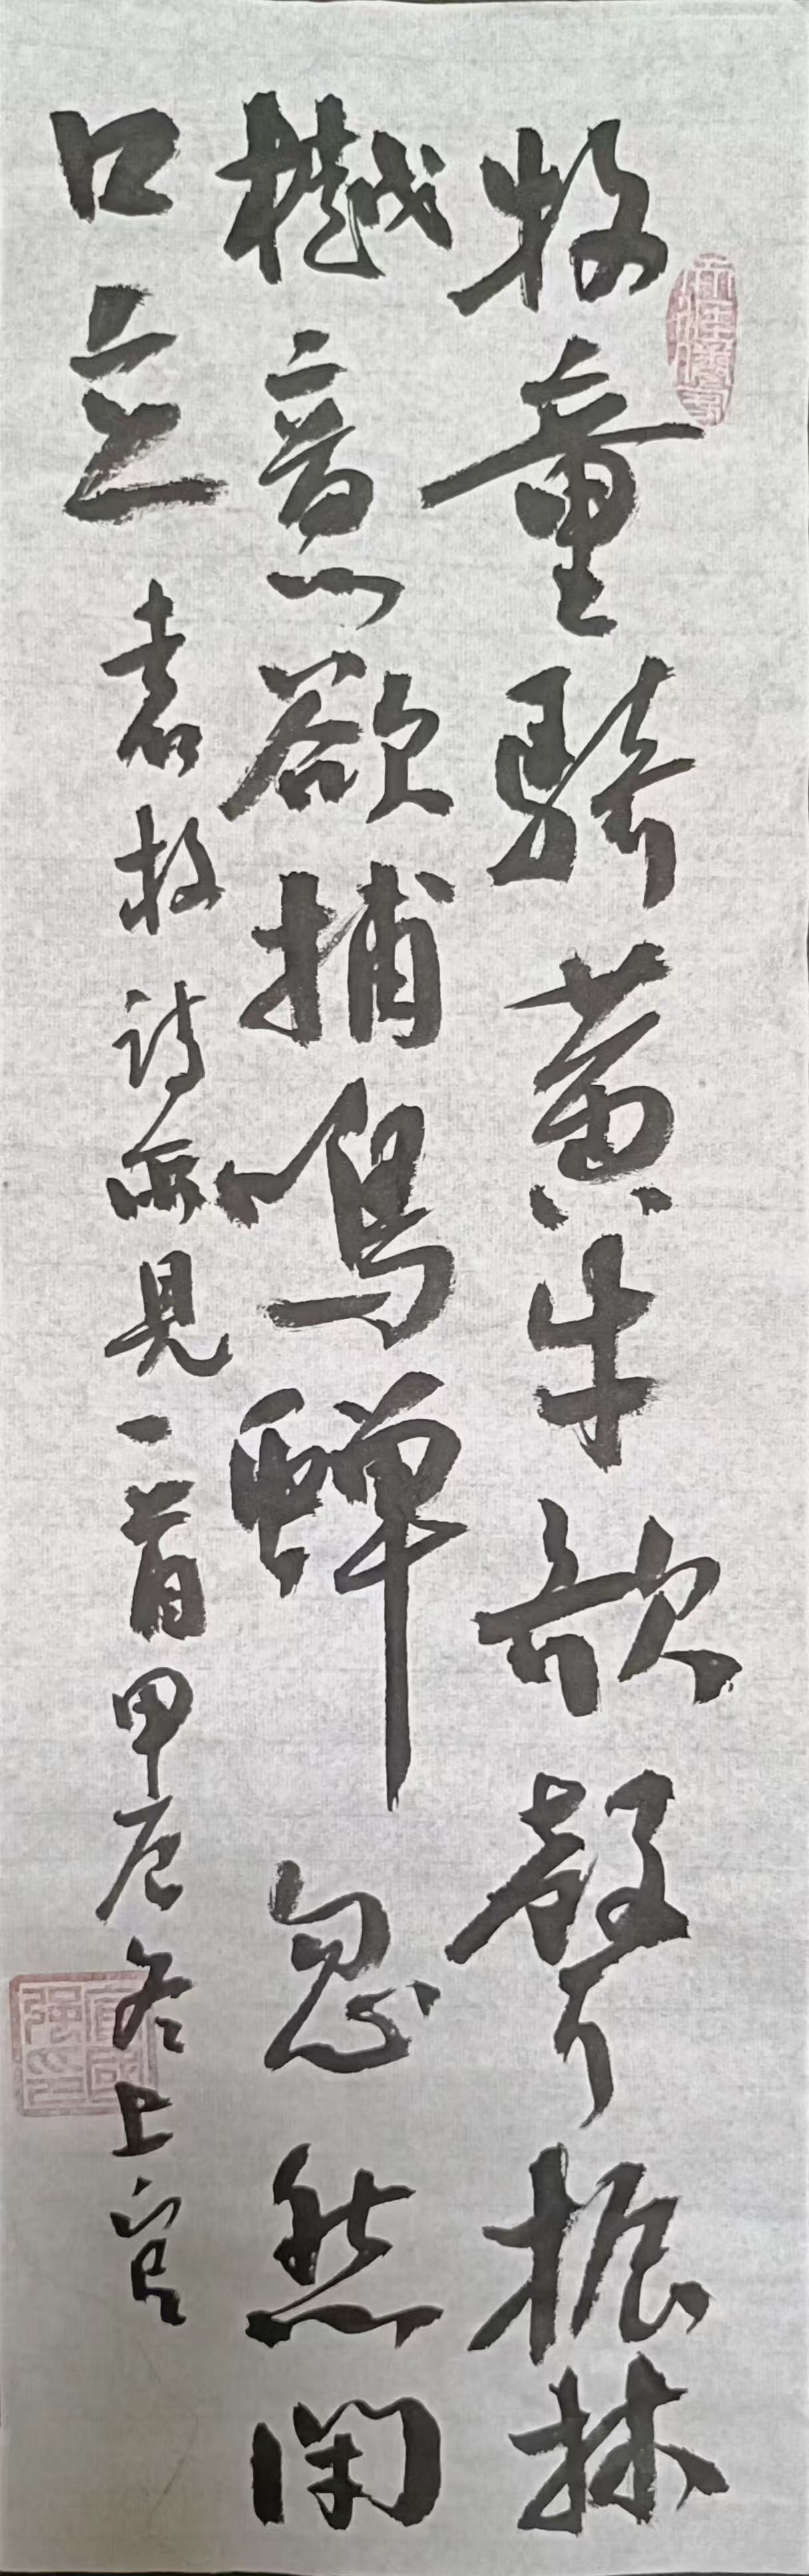 牧童騎黄牛歌聲振林
樾意欲捕鳴蟬忽然閉
口立
袁枚诗所見一首甲辰冬上官